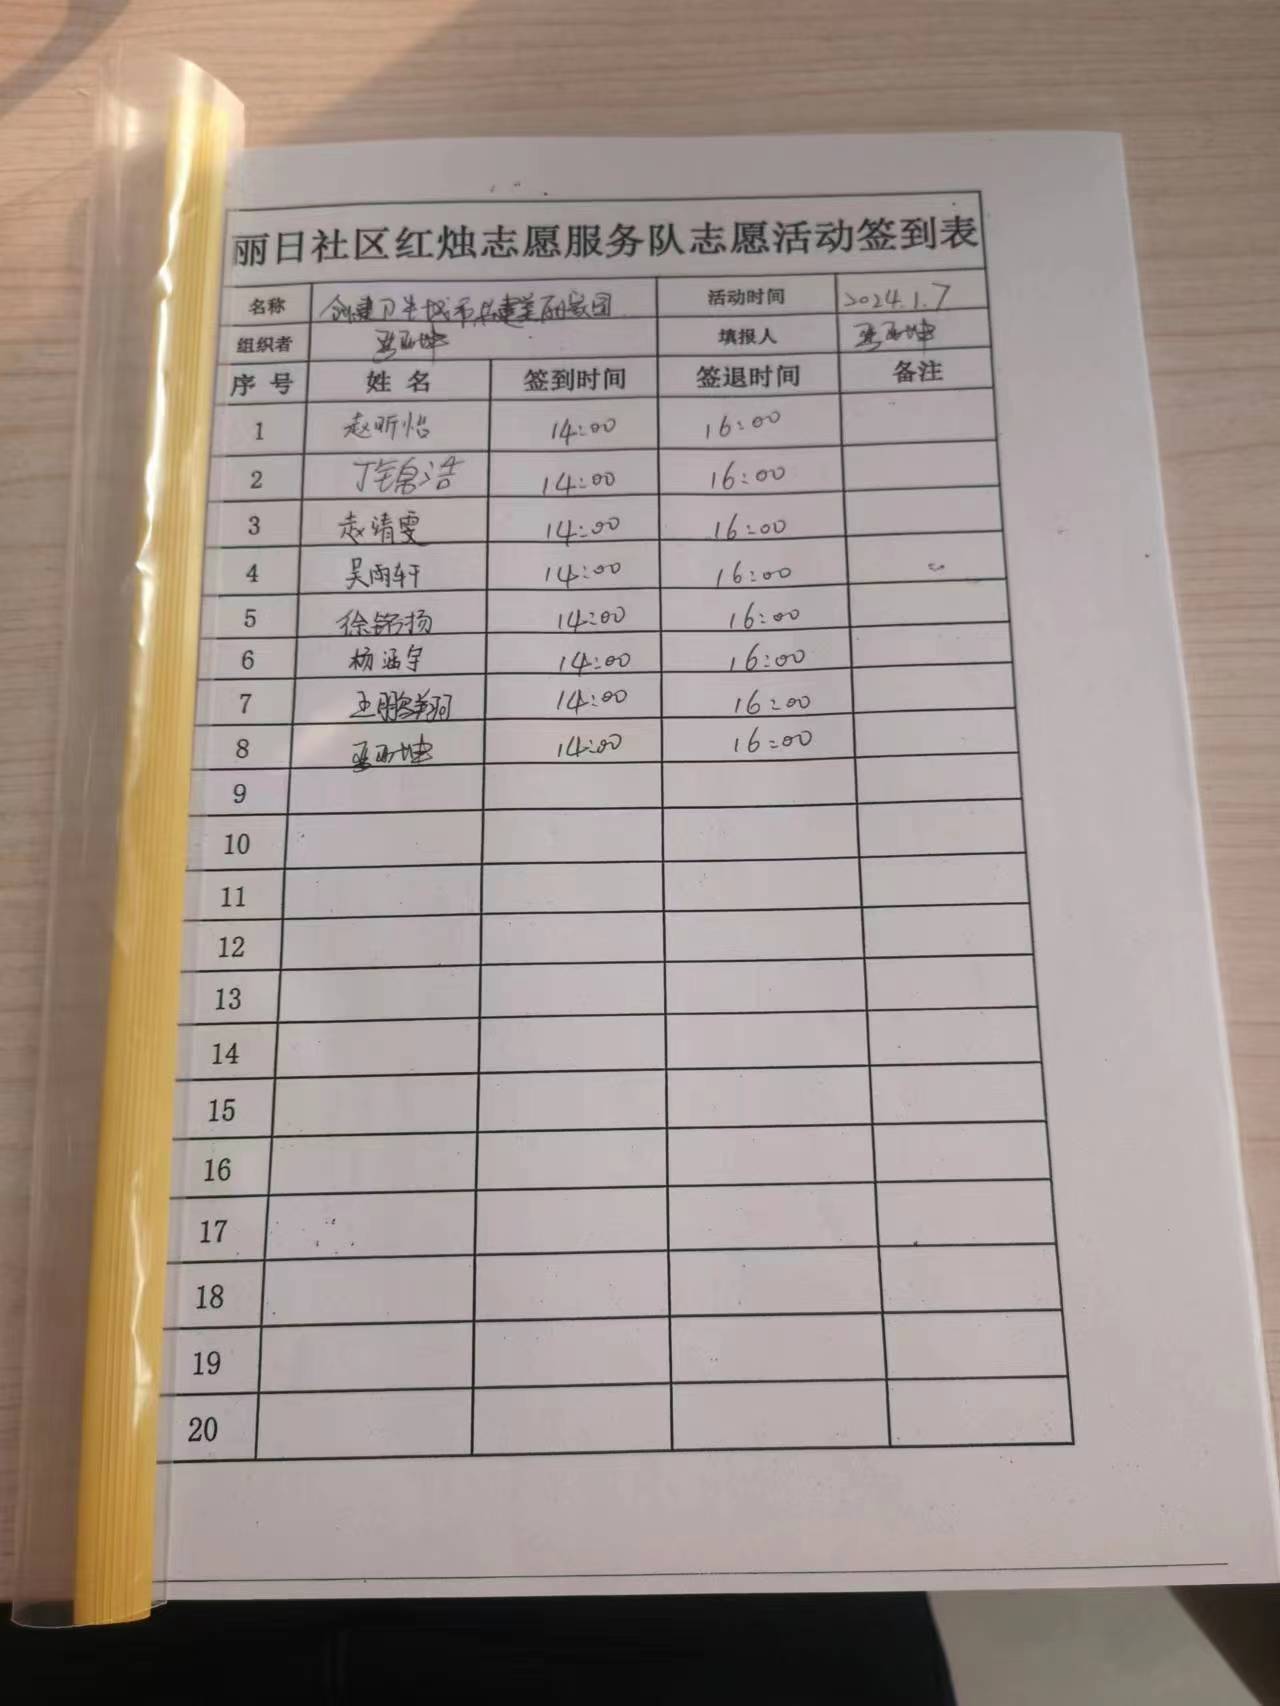 丽日社区红烛志愿服务队志愿活动签到表
名称 创建卫生城市共建美丽家园 活动时间 2024.1.7
组织者 填报人
序号 姓名 签到时间 签退时间 备注
1 赵昕怡 14:00 16:00
2 丁 浩 14:00 16:00
3 赵清雯 14:00 16:00
4 吴雨轩 14:00 16:00
5 徐铭扬 14:00 16:00
6 杨涵宇 14:00 16:00
7 王鹏 14:00 16:00
8 14:00 16:00
9
10
11
12
13
14
15
16
17
18
19
20